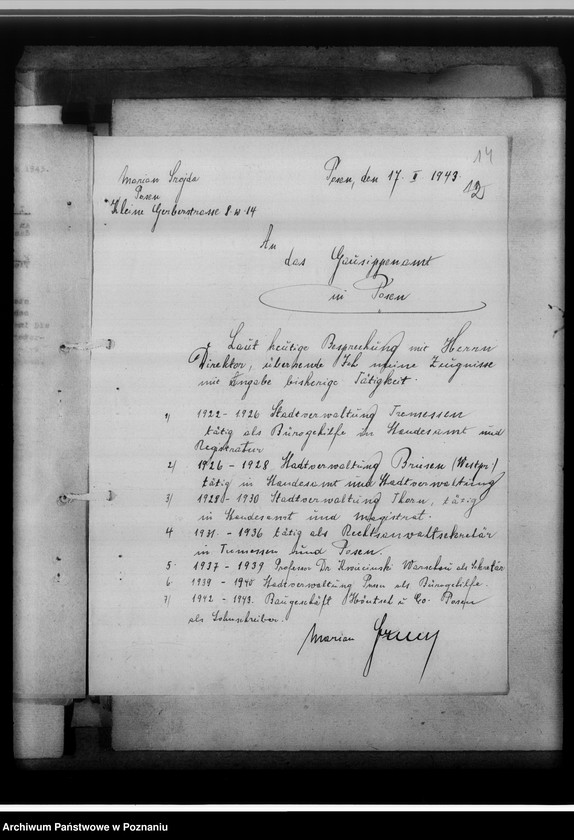 14
Marian Szajda
Posen, den 17. II 1943.
12
Posen
Kleine Gerberstrasse 8 w 14
An
das Gausippenamt
in Posen
Laut heutige Besprechung mit Herrn
Direktor, übersende Ich meine Zeugnisse
mit Angabe bisherige Tätigkeit.
1/ 1922 - 1926 Stadtverwaltung Tremessen
tätig als Bürogehilfe in Standesamt und
Registratur
2/ 1926 - 1928 Stadtverwaltung Briesen (Westpr.)
tätig in Standesamt und Stadtverwaltung
3/ 1928 - 1930 Stadtverwaltung Thorn, tätig
in Standesamt und Magistrat.
4 1931 - 1936 tätig als Rechtsanwaltsekretär
in Tremessen und Posen.
5. 1937 - 1939 Professor Dr. Warschau als Sekretär
6. 1939 - 1940 Stadtverwaltung Posen als Bürogehilfe.
7/ 1942 - 1943. Baugeschäft u. Co. Posen
als Lohnschreiber.
Marian
Archiwum Państwowe w Poznaniu